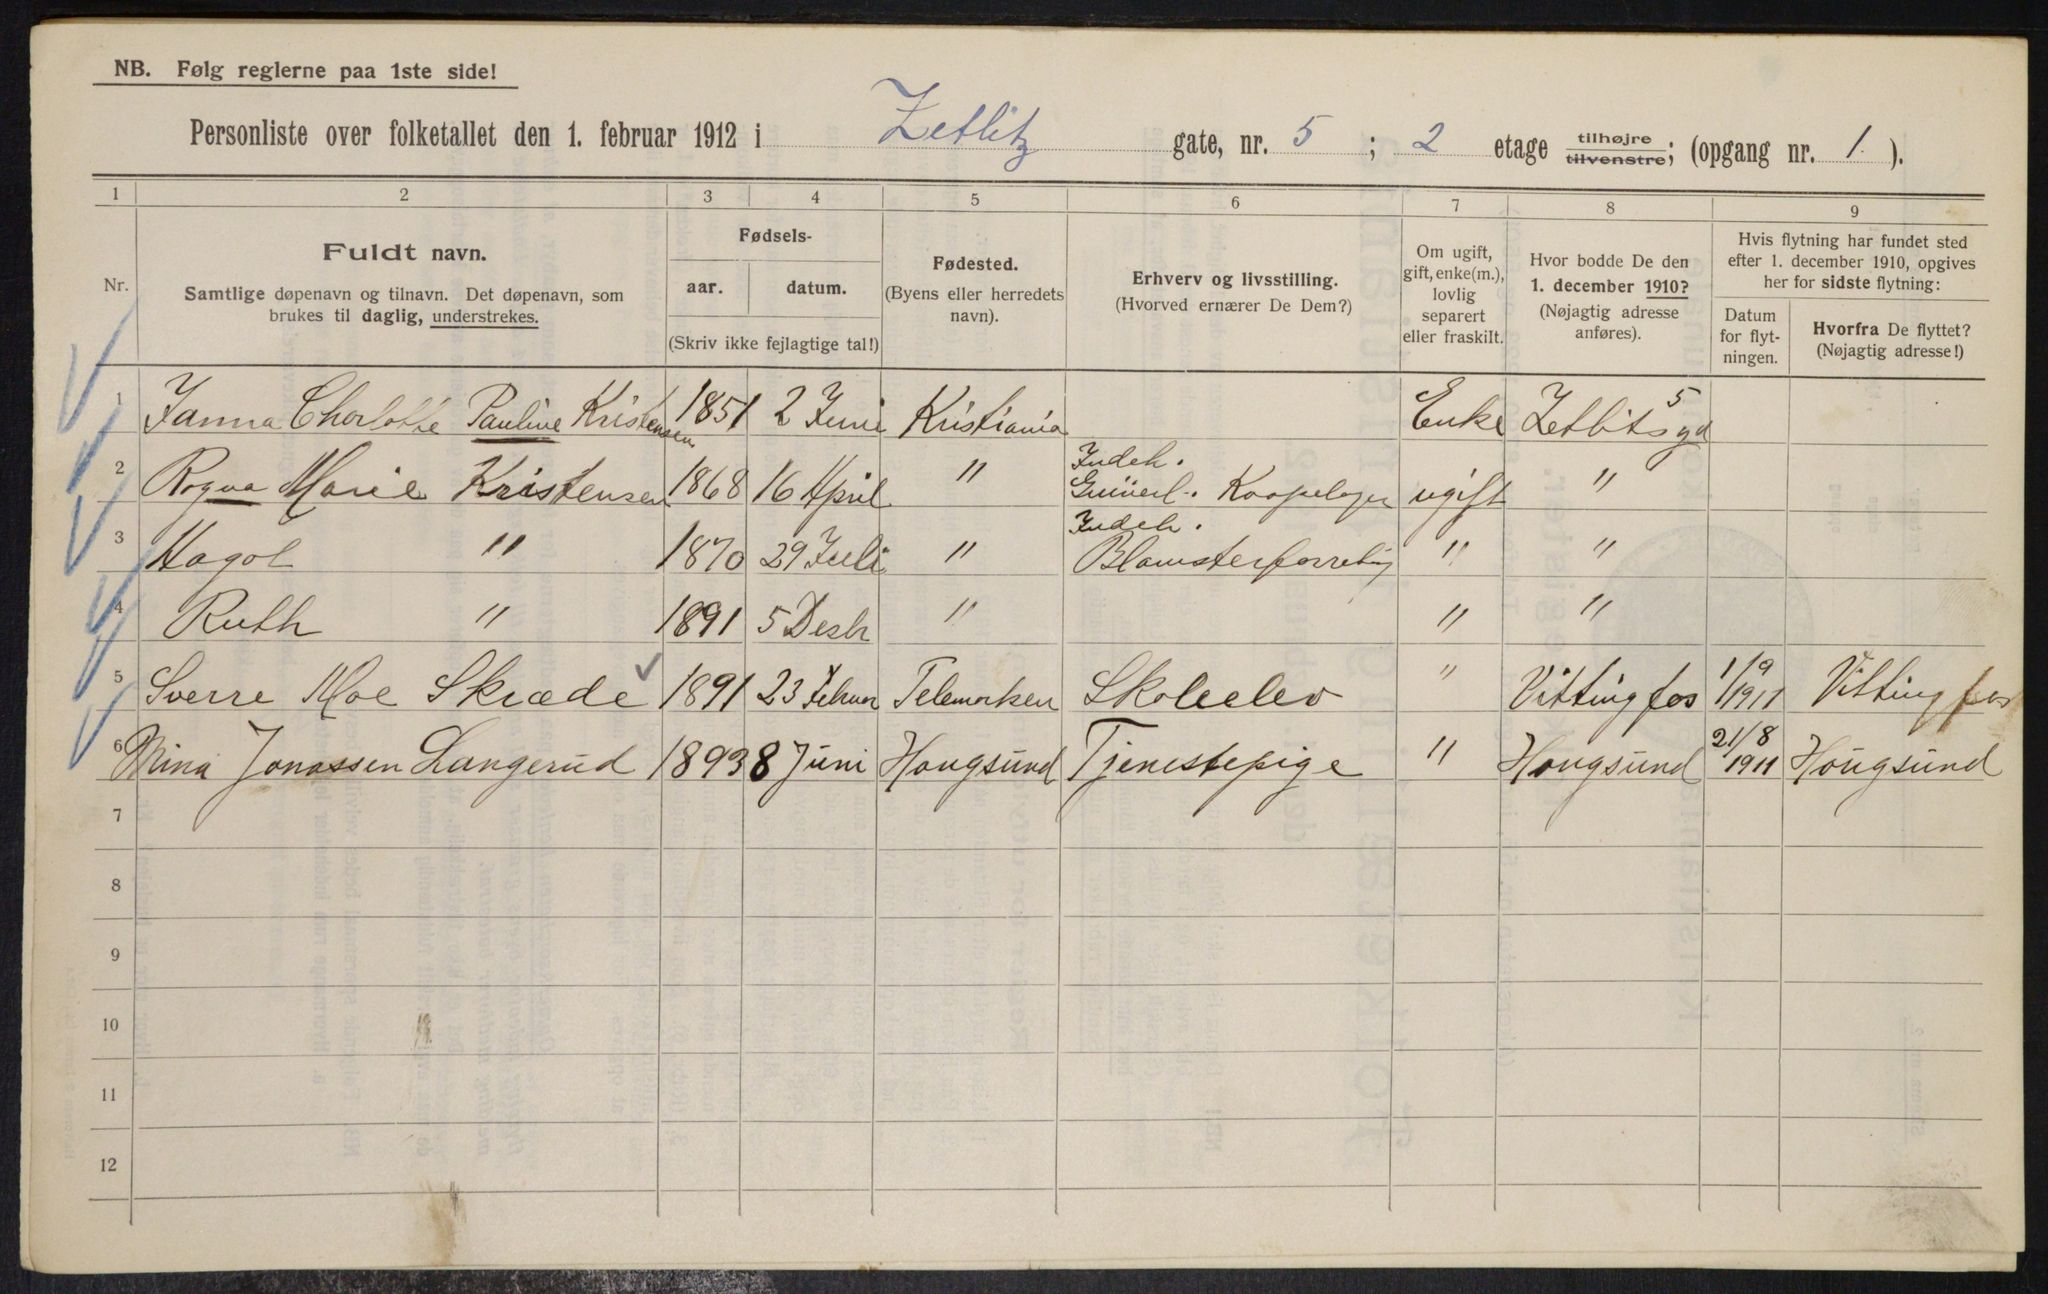 NB. Følg reglerne paa 1ste side!
Personliste over folketallet den 1. februar 1912 i Zetlitz gate, nr. 5 ; 2 etage tilhøjre tilvenstre; (opgang nr. 1 ).
1 2 3 4 5 6 7 8 9
Nr.
Fuldt navn.
Samtlige døpenavn og tilnavn. Det døpenavn, som
brukes til daglig, understrekes.
Fødsels-
aar. datum.
(Skriv ikke fejlagtige tal!)
Fødested.
(Byens eller herredets
navn).
Erhverv og livsstilling.
(Hvorved ernærer De Dem?)
Om ugift,
gift, enke(m.),
lovlig
separert
eller fraskilt.
Hvor bodde De den
1. december 1910?
(Nøjagtig adresse
anføres).
Hvis flytning har fundet sted
efter 1. december 1910, opgives
her for sidste flytning:
Datum
for flyt-
ningen.
Hvorfra De flyttet?
(Nøjagtig adresse!)
1 Janna Charlotte Pauline Kristensen 1851 2 Juni Kristiania Enke Zetlitsgd 5
2 Ragna Marie Kristensen 1868 16 April " Indeh. ugift "
3 Hagol " 1870 29 Juli " Indeh. Blomsterforretng " "
4 Ruth " 1891 5 Desbr " " "
5 Sverre Moe Skræde 1891 23 Februar Telemarken Skoleelev " Vittingfos 1/9 1911 Vittingfos
6 Mina Jonassen Langerud 1893 8 Juni Hougsund Tjenestepige " Hougsund 21/8 1911 Hougsund
7
8
9
10
11
12